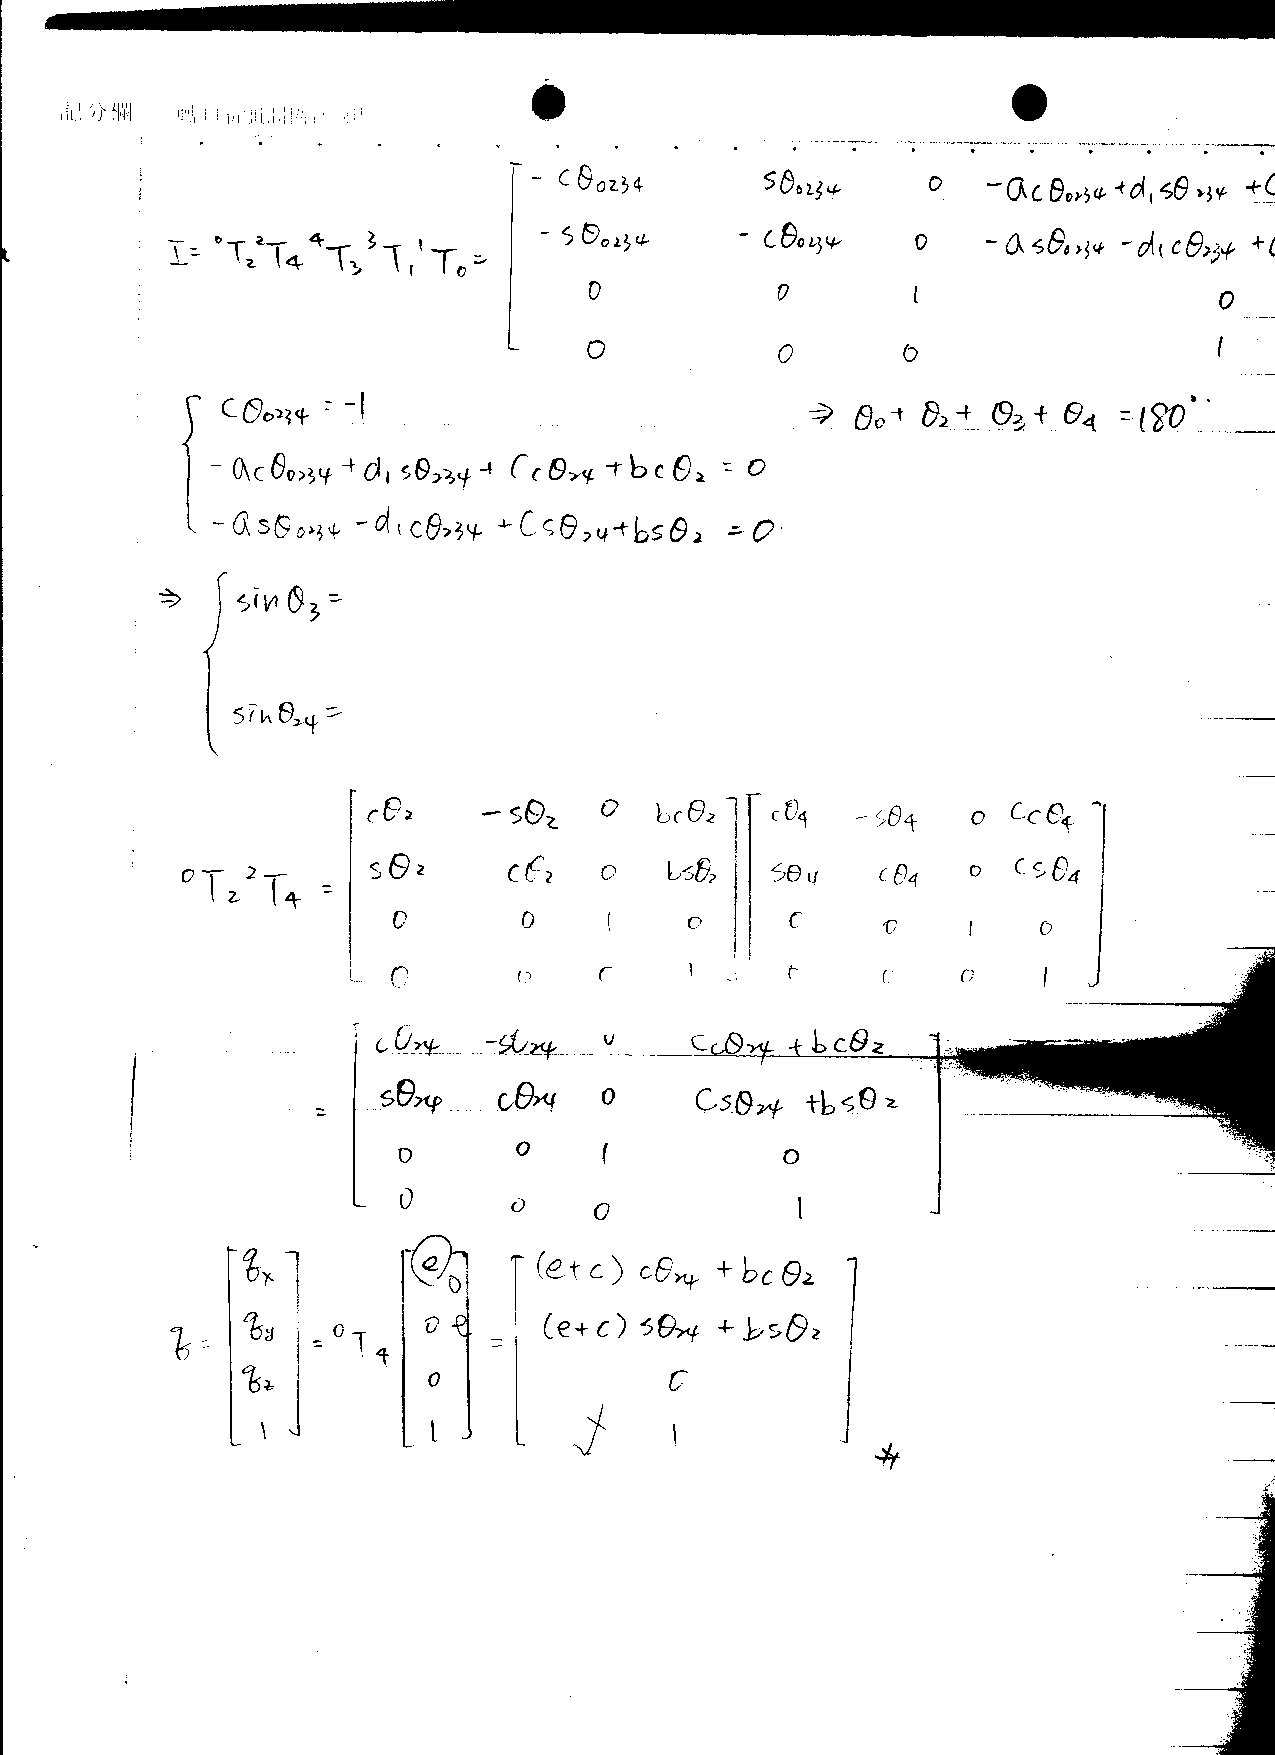 記分欄
I = ⁰T₂ ²T₄ ⁴T₃ ³T₁ ¹T₀ =
[ -cθ₀₂₃₄ sθ₀₂₃₄ 0 -acθ₀₂₃₄+d₁sθ₂₃₄ +C
-sθ₀₂₃₄ -cθ₀₂₃₄ 0 -asθ₀₂₃₄ -d₁cθ₂₃₄ +C
0 0 1 0
0 0 0 1
{ cθ₀₂₃₄ = -1 ⇒ θ₀ + θ₂ + θ₃ + θ₄ = 180°
-acθ₀₂₃₄ + d₁sθ₂₃₄ + Ccθ₂₄ + bcθ₂ = 0
-asθ₀₂₃₄ -d₁cθ₂₃₄ + Csθ₂₄ + bsθ₂ = 0
⇒ { sin θ₃ =
sin θ₂₄ =
⁰T₂ ²T₄ =
[ cθ₂ -sθ₂ 0 bcθ₂ ] [ cθ₄ -sθ₄ 0 Ccθ₄ ]
sθ₂ cθ₂ 0 bsθ₂ sθ₄ cθ₄ 0 Csθ₄
0 0 1 0 0 0 1 0
0 0 0 1 0 0 0 1
=
[ cθ₂₄ -sθ₂₄ 0 Ccθ₂₄ + bcθ₂ ]
sθ₂₄ cθ₂₄ 0 Csθ₂₄ + bsθ₂
0 0 1 0
0 0 0 1
q = [ qx qy qz 1 ] = ⁰T₄ [ e 0 0 1 ] =
[ (e+c) cθ₂₄ + bcθ₂
(e+c) sθ₂₄ + bsθ₂
0
1 ]